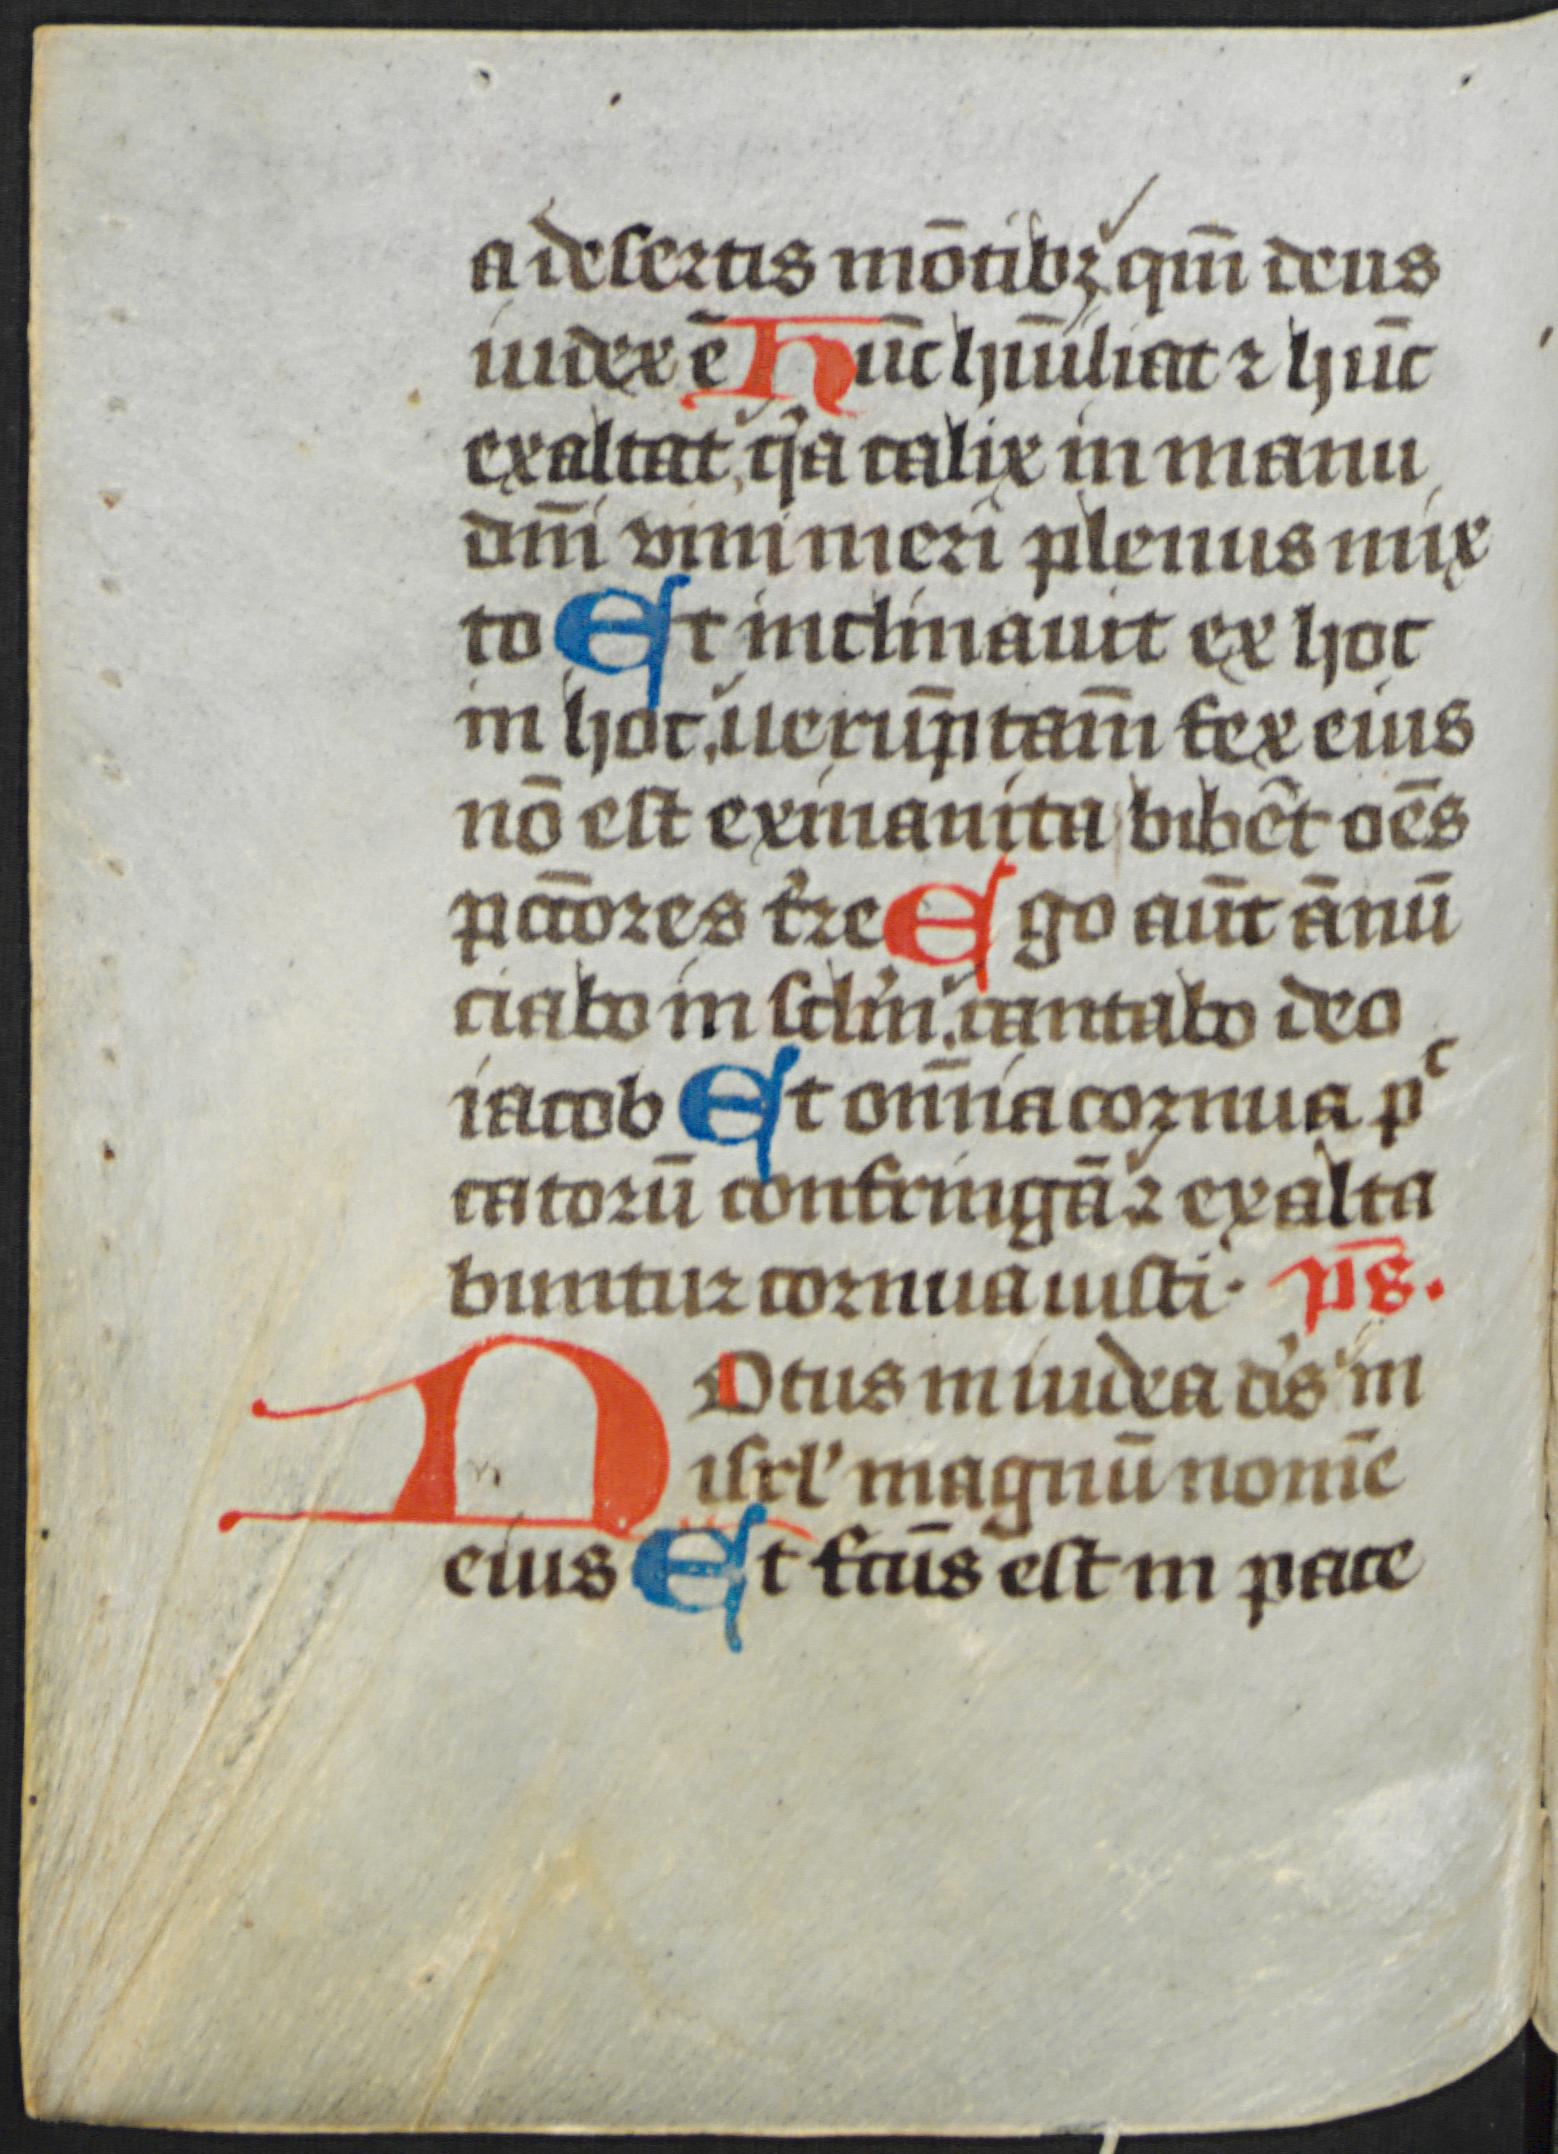 a desertis mōtibꝫ qm̄ deus
iudex ē Hūc hūiliat ⁊ hūc
exaltat, qͥa calix in manu
dn̄i vini meri plenus mix
to Et inclinauit ex hoc
in hoc, uerūptam̄ fex eius
nō est exinanita bibēt oēs
pctōres tr̓re Ego aūt ānū
ciabo in sclm̓, cantabo deo
iacob Et om̄ia cornua pᶜ
catorū confringā ⁊ exalta
buntur cornua iusti · ps̄.
NOtus in iudea ds̓ in
isrl̓ magnū nomē
eius Et fctūs est in pace